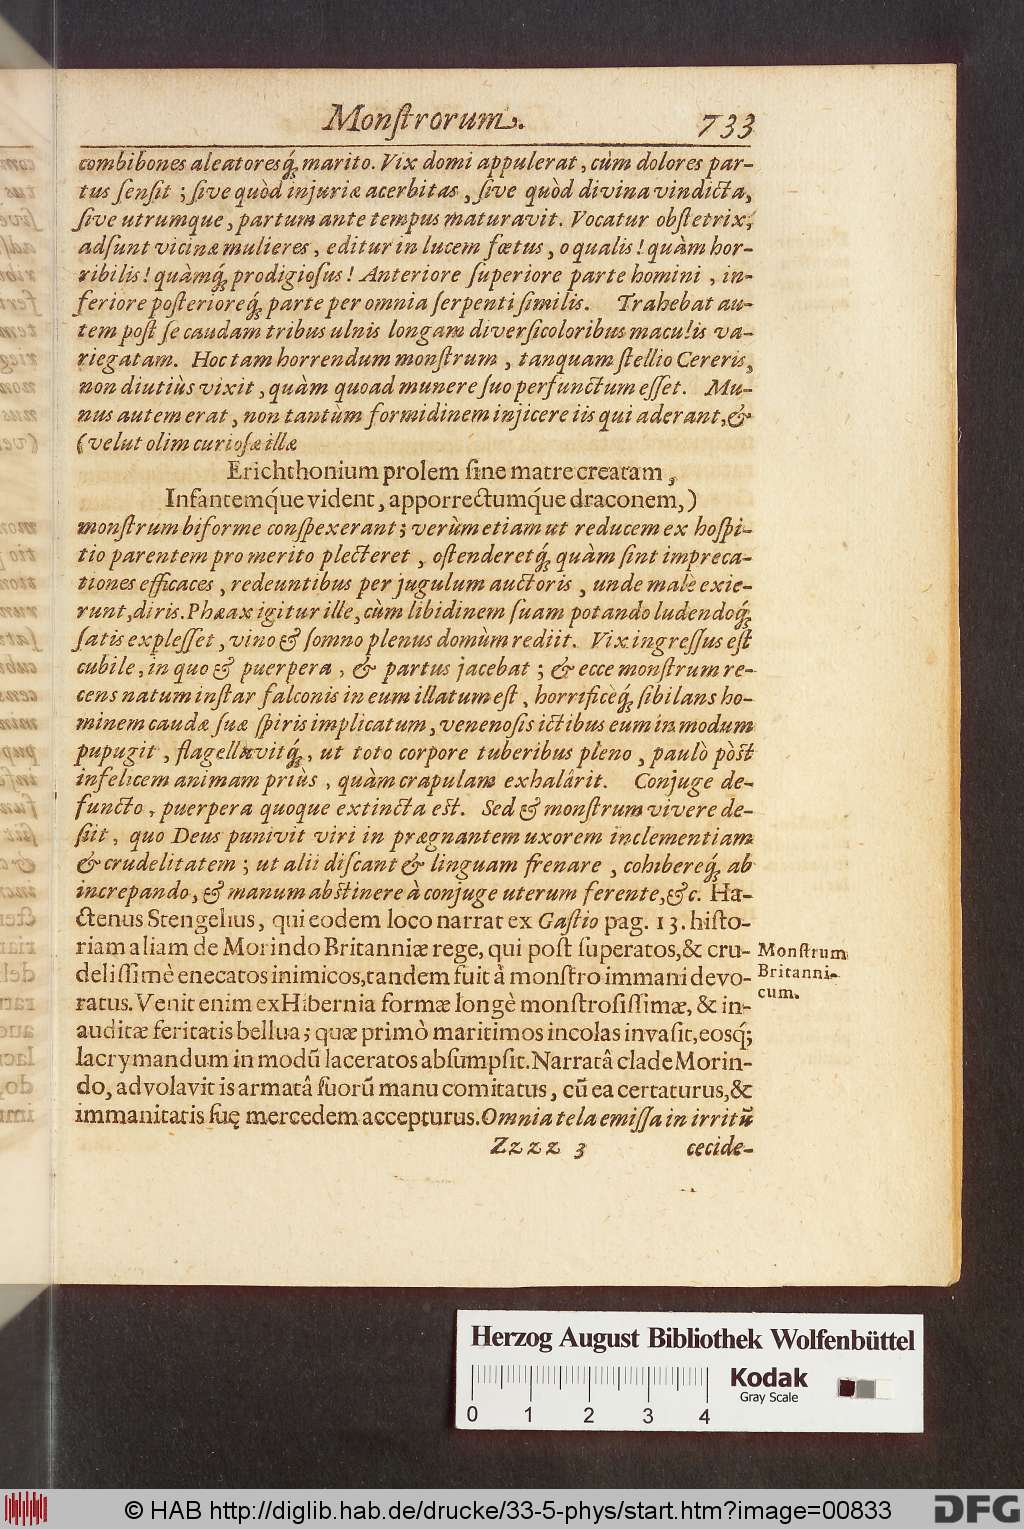 Monſtrorum.
733
combibones aleatoresq́; marito. Vix domi appulerat, cùm dolores par-
tus ſenſit; ſive quòd injuriæ acerbitas, ſive quòd divina vindicta,
ſive utrumque, partum ante tempus maturavit. Vocatur obſtetrix,
adſunt vicinæ mulieres, editur in lucem fœtus, o qualis! quàm hor-
ribilis! quàmq́; prodigioſus! Anteriore ſuperiore parte homini, in-
feriore poſterioreq́; parte per omnia ſerpenti ſimilis. Trahebat au-
tem poſt ſe caudam tribus ulnis longam diverſicoloribus maculis va-
riegatam. Hoc tam horrendum monſtrum, tanquam ſtellio Cereris,
non diutiùs vixit, quàm quoad munere ſuo perfunctum eſſet. Mu-
nus autem erat, non tantùm formidinem injicere iis qui aderant, &
(velut olim curioſæ illæ
Erichthonium prolem ſine matre creatam,
Infantemq́ue vident, apporrectumq́ue draconem,)
monſtrum biforme conſpexerant; verùm etiam ut reducem ex hoſpi-
tio parentem pro merito plecteret, oſtenderetq́; quàm ſint impreca-
tiones efficaces, redeuntibus per jugulum auctoris, unde malè exie-
runt, diris. Phæax igitur ille, cùm libidinem ſuam potando ludendoq́;
ſatis expleſſet, vino & ſomno plenus domùm rediit. Vix ingreſſus eſt
cubile, in quo & puerpera, & partus jacebat; & ecce monſtrum re-
cens natum inſtar falconis in eum illatum eſt, horrificèq́; ſibilans ho-
minem caudæ ſuæ ſpiris implicatum, venenoſis ictibus eum in modum
pupugit, flagellavitq́;, ut toto corpore tuberibus pleno, paulò pòſt
infelicem animam priùs, quàm crapulam exhalârit. Conjuge de-
functo, puerpera quoque extincta eſt. Sed & monſtrum vivere de-
ſiit, quo Deus punivit viri in prægnantem uxorem inclementiam
& crudelitatem; ut alii diſcant & linguam frenare, cohibereq́; ab
increpando, & manum abſtinere à conjuge uterum ferente, &c. Ha-
ctenus Stengelius, qui eodem loco narrat ex Gaſtio pag. 13. hiſto-
riam aliam de Morindo Britanniæ rege, qui poſt ſuperatos, & cru-
deliſſimè enecatos inimicos, tandem fuit à monſtro immani devo-
ratus. Venit enim ex Hibernia formæ longè monſtroſiſſimæ, & in-
auditæ feritatis bellua; quæ primò maritimos incolas invaſit, eosq́;
lacrymandum in modũ laceratos abſumpſit. Narratâ clade Morin-
do, advolavit is armatâ ſuorũ manu comitatus, cũ ea certaturus, &
immanitatis ſuę mercedem accepturus. Omnia tela emiſſa in irritũ
Monſtrum
Britanni-
cum.
Zzzz 3
cecide-
Herzog August Bibliothek Wolfenbüttel
Kodak
Gray Scale
0 1 2 3 4
© HAB http://diglib.hab.de/drucke/33-5-phys/start.htm?image=00833
DFG